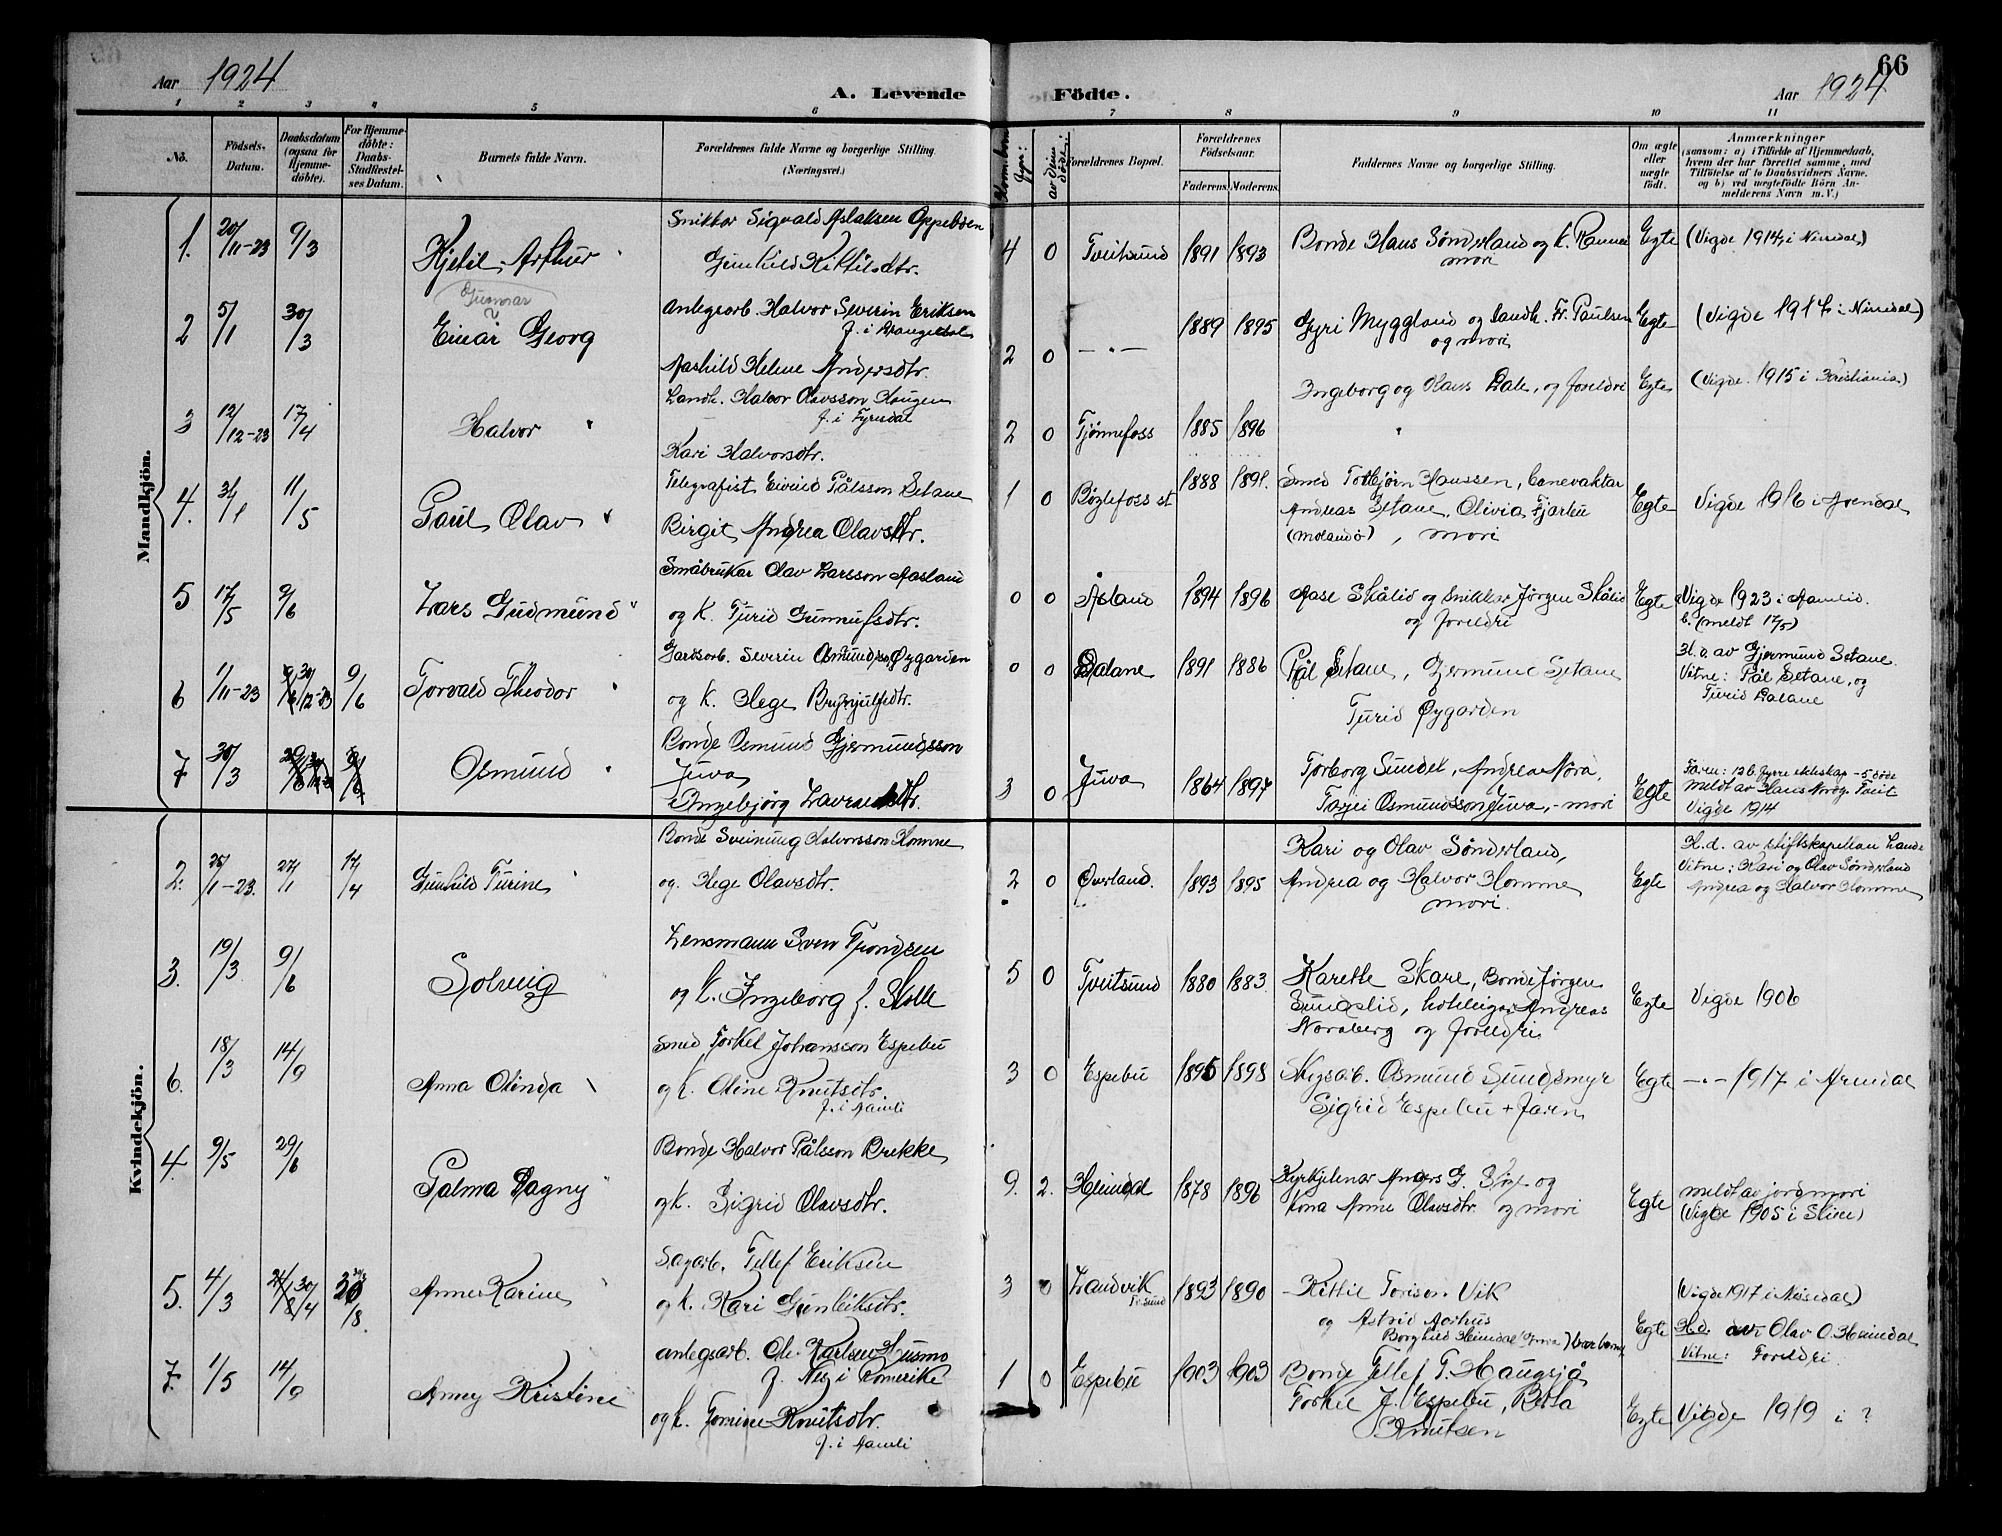 66
Aar 1924
A. Levende Födte.
Aar 1924
1 2 3 4 5 6 7 8 9 10 11
No.
Födsels-
Datum.
Daabsdatum
(ogsaa for
Hjemme-
döbte).
For Hjemme-
döbte:
Daabs-
Stadfæstel-
ses Datum.
Barnets fulde Navn.
Forældrenes fulde Navne og borgerlige Stilling.
(Næringsvei.)
av deim
døde:
Forældrenes Bopæl.
Forældrenes
Födselsaar.
Faderens. Moderens.
Faddernes Navne og borgerlige Stilling.
Om ægte
eller
uægte
født.
Anmærkninger
(saasom: a) i Tilfælde af Hjemmedaab,
hvem der har forrettet samme, med
Tilföielse af to Daabsvidners Navne.
og b) ved uegtefödte Börn An-
melderens Navn m. V.)
Mandkjön.
1. 20/11-23 9/3 Kjetil Arthur
Snikkar Sigvald Aslaksen Oppeboen
Gunhild Kittilsdtr.
4 0 Tveitsund 1891 1893
Bonde Hans Sønderland og k. Ranne
mori
Egte (Vigde 1914 i Nissedal)
2 5/1 30/3
Gunnar
Einar Georg
Anlegsarb. Halvor Severin Eriksen
f. i Drangedal
Aashild Helene Andersdtr.
2 0 — " — 1889 1895
Gyri Myggland og landh. Fr. Paulsen
og mori
Egte (Vigde 1917 i Nissedal)
3 12/12-23 17/4 Halvor
Landh. Halvor Olavsson Haugen
f. i Fyresdal
Kari Halvorsdtr.
2 0 Tjønnefoss 1885 1896
Ingeborg og Hans Dale, og foreldri
Egte (Vigde 1915 i Kristiania)
4. 31/1 11/5 Paul Olav
Telegrafist Eivind Pålsson Setane
Birgit Andrea Olavsdtr.
1 0 Bøylefoss st 1888 1891.
Smed Torbjørn Hanssen, banevaktar
Andreas Setane, Olivia Fjørbu
(Molandø) , mori
Egte Vigde 1916 i Arendal
5 17/5 9/6 Lars Gudmund
Småbrukar Olav Larsson Aasland
og k. Turid Gunnufsdtr.
0 0 Åsland 1894 1896
Aase Skålid og snikkar Jørgen Skålid
og foreldri
Egte Vigde 1923 i Aamlid.
b. (meldt 17/5)
6 1/11-23 9/6 30/12-23 9/6 Torvald Theodor
Gardsarb. Severin Osmundss. Øygarden
og k. Hege Brynjulfsdtr.
0 0 Dalane 1891 1886
Pål Setane, Gjermund Setane
Turid Øygarden
H. d. av Gjermund Setane.
Vitne: Pål Setane, og
Turid Dalane
7 30/3 Osmund
Bonde Osmund Gjermundsson
Juva
Ingebjørg Lavrantsdtr.
3 0 Juva 1864 1897
Torborg Sundet, Andrea Nora,
Tarjei Osmundsson Juva, - mori
Egte Faren: 12 b. fyrre ekteskap - 5 døde
meldt av Hans Norg. Tveit
Vigde 1914
Kvindekjön.
2. 25/11-23. 27/1 17/4 Gunhild Turine
Bonde Sveinung Halvorsson Homme
og. Hege Olavsdtr.
2 0 Øverland. 1893 1895
Kari og Olav Sønderland,
Andrea og Halvor Homme
mori.
Egte H.d. av stiftskapellan Lande
Vitne: Kari og Olav Sønderland
Andrea og Halvor Homme
3. 19/3 9/6 Solveig
Lensmann Sven Trondsen
og k. Ingeborg f. Stolle
5 0 Tveitsund 1880 1883
Karette Skare, Bonde Jørgen
Sundslid, hotelleigar Andreas
Noraberg og foreldri
Egte Vigde 1906
6. 18/3 14/9 Anna Olinda
Smed Torkel Johansson Espebu
og k. Oline Knutsdtr.
f. i Aamli
3 0 Espebu 1895 1898
Skogsarb. Osmund Sundsmyr
Sigrid Espebu + faren
Egte — " — 1917 i Arendal
4. 9/5 29/6 Palma Dagny
Bonde Halvor Pålsson Brekke
og k. Sigrid Olavsdtr.
9. 2. Heimdal 1878 1896
Kyrkjetenar Anders G. Støyl og
kona Anne Olavsdtr. og mori
Egte meldt av jordmori
(Vigde 1905 i Skien)
5. 4/3 30/4 Anne Karine
Sagarb. Tellef Eriksen
og k. Kari Gunleiksdtr.
3 0 Landvik 1893 1890
Kittil Torison Vik
og Astrid Aarhus
Borghild Heimdal
Egte (Vigde 1917 i Nissedal)
Hd. av Olav O. Heimdal
Vitne: Foreldri.
7. 1/5 14/9 Anny Kristine
anlegsarb. Ole Karlsen Husmo
f. Nes i Romerike
og k. Tomine Knutsdtr.
f. i Aamli
1 0 Espebu 1903 1903
Bonde Tellef T. Haugsjå
Torkel J. Espebu, Berta
Knutsen
Egte Vigde 1919 i ?